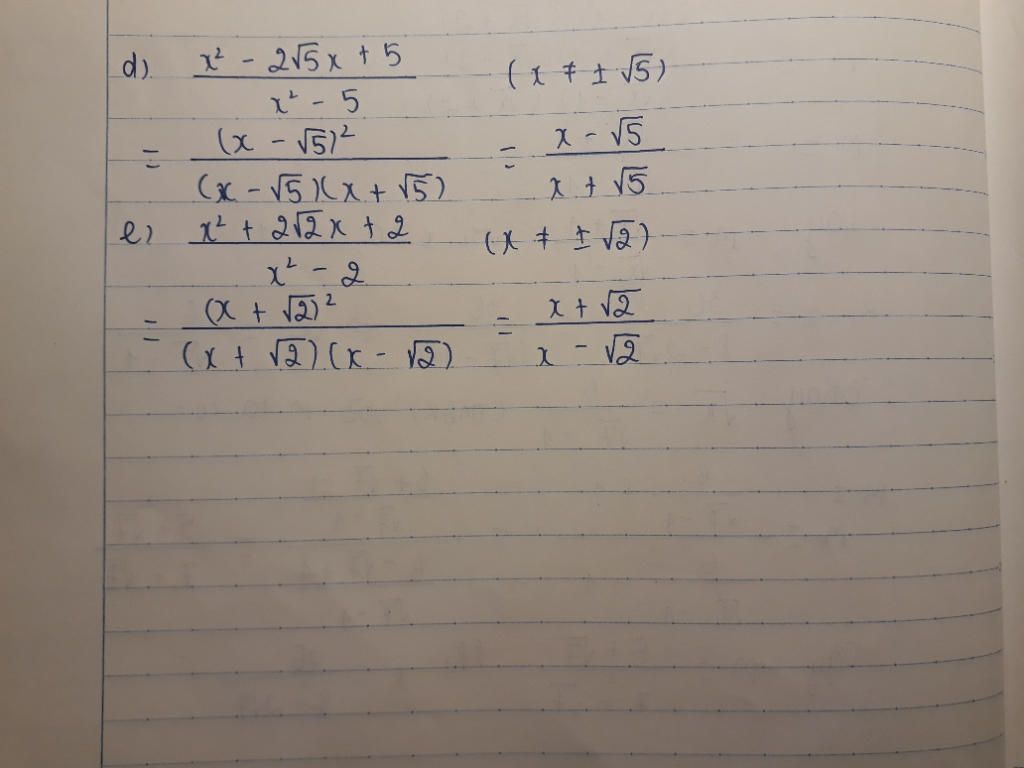 d) (x² - 2√5x + 5)/(x² - 5) (x ≠ ± √5)
= (x - √5)²/((x - √5)(x + √5)) = (x - √5)/(x + √5)
e) (x² + 2√2x + 2)/(x² - 2) (x ≠ ± √2)
= (x + √2)²/((x + √2)(x - √2)) = (x + √2)/(x - √2)